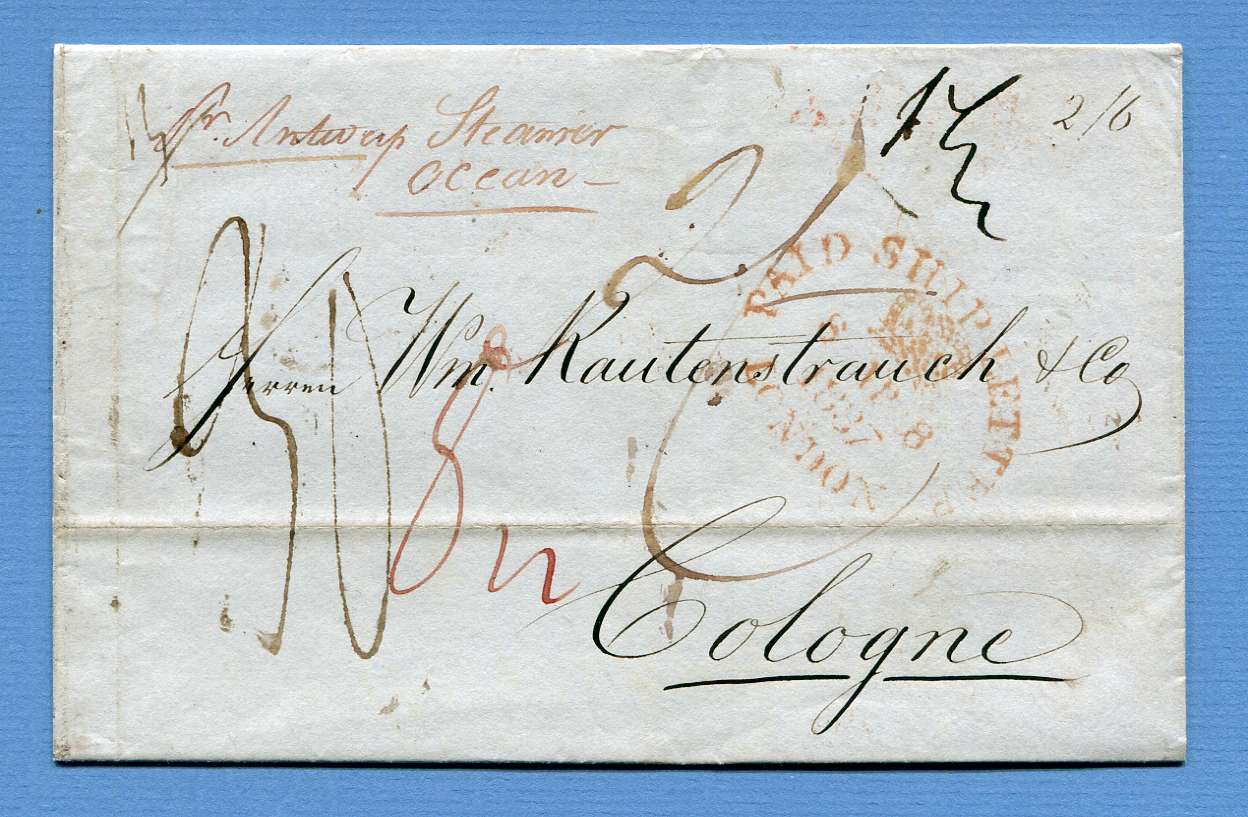 Pr. Antwerp Steamer
Ocean
2/6
PAID SHIP LETTER
LONDON
8
1837
Herren Wm. Rautenstrauch & Co
Cologne